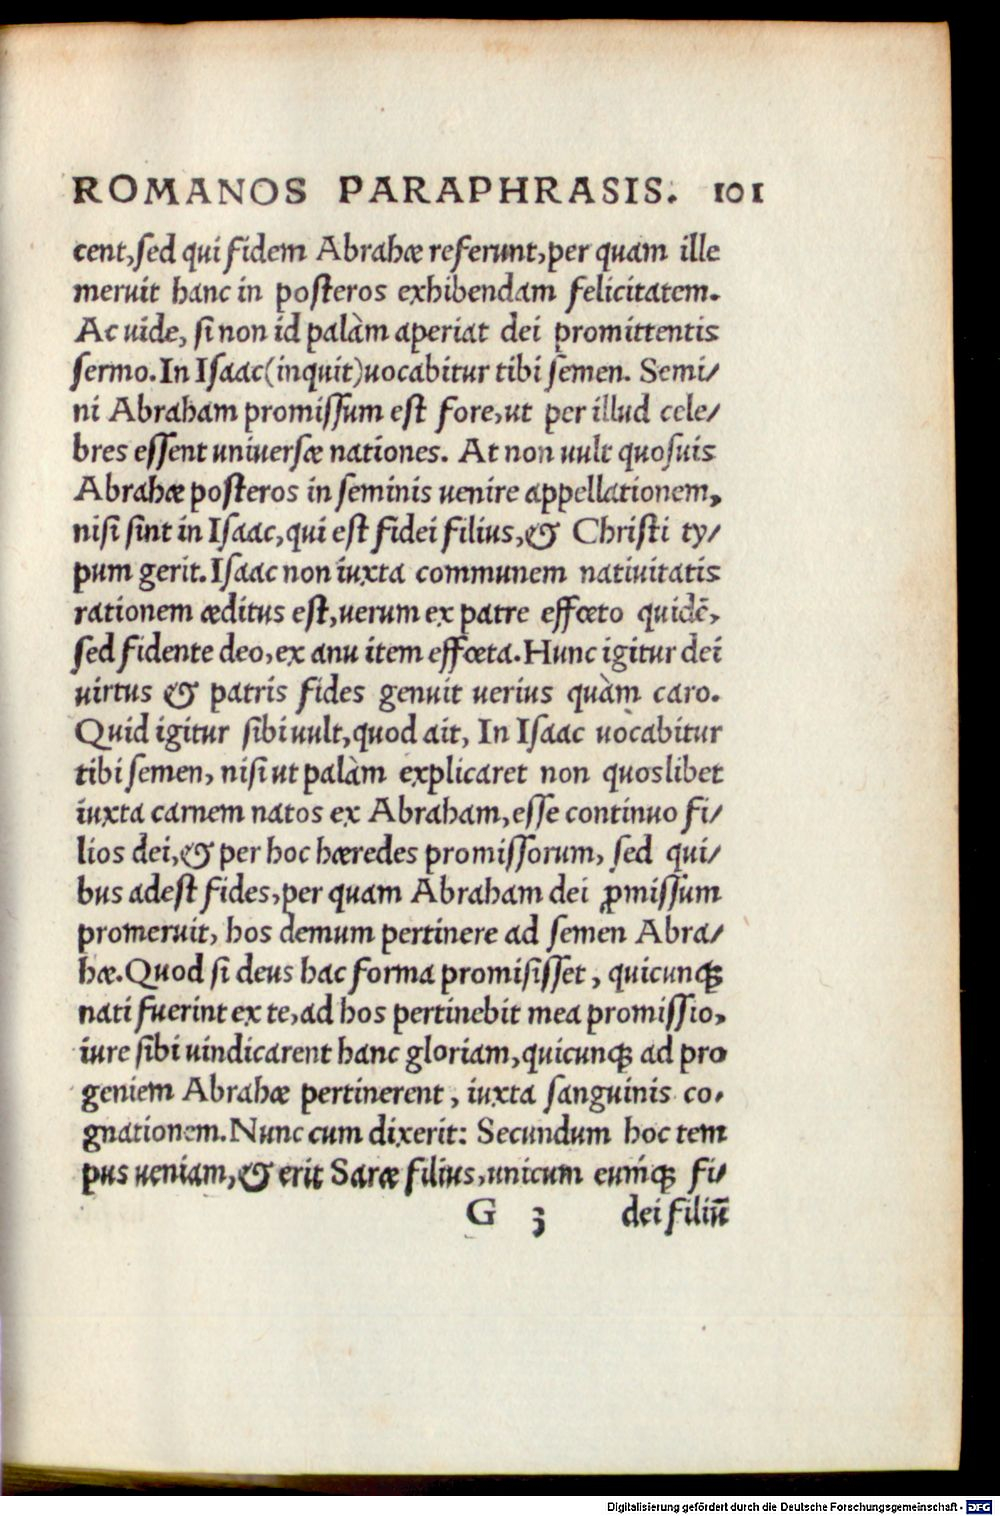 ROMANOS PARAPHRASIS. 101
cent, sed qui fidem Abrahæ referunt, per quam ille
meruit hanc in posteros exhibendam felicitatem.
Ac uide, si non id palàm aperiat dei promittentis
sermo. In Isaac (inquit) uocabitur tibi semen. Semi/
ni Abraham promissum est fore, ut per illud cele/
bres essent uniuersæ nationes. At non uult quosuis
Abrahæ posteros in seminis uenire appellationem,
nisi sint in Isaac, qui est fidei filius, & Christi ty/
pum gerit. Isaac non iuxta communem natiuitatis
rationem æditus est, uerum ex patre effœto quidē,
sed fidente deo, ex anu item effœta. Hunc igitur dei
uirtus & patris fides genuit uerius quàm caro.
Quid igitur sibi uult, quod ait, In Isaac uocabitur
tibi semen, nisi ut palàm explicaret non quoslibet
iuxta carnem natos ex Abraham, esse continuo fi/
lios dei, & per hoc hæredes promissorum, sed qui/
bus adest fides, per quam Abraham dei ꝓmissum
promeruit, hos demum pertinere ad semen Abra/
hæ. Quod si deus hac forma promisisset, quicunqꝫ
nati fuerint ex te, ad hos pertinebit mea promissio,
iure sibi uindicarent hanc gloriam, quicunqꝫ ad pro
geniem Abrahæ pertinerent, iuxta sanguinis co/
gnationem. Nunc cum dixerit: Secundum hoc tem
pus ueniam, & erit Saræ filius, unicum eumq́ꝫ fi/
G 3 dei filiū
Digitalisierung gefördert durch die Deutsche Forschungsgemeinschaft - DFG